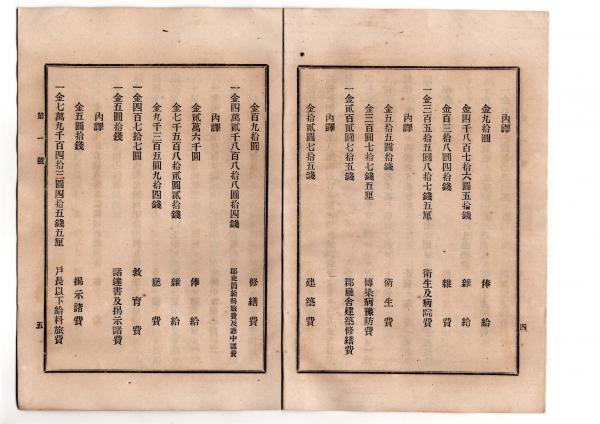 內譯
金九拾圓 俸給
金四千八百七拾六圓五拾錢 雜給
金百三拾八圓四拾錢 雜費
一金三百五拾五圓八拾七錢五厘 衛生及病院費
內譯
金五拾五圓拾錢 衛生費
金三百圓七拾七錢五厘 傳染病豫防費
一金貳百貳圓七拾五錢 郡廳舍建築修繕費
內譯
金拾貳圓七拾五錢 建築費
四
金百九拾圓 修繕費
一金四萬貳千八百八拾八圓拾四錢
內譯
金貳萬六千圓 俸給
金七千五百八拾貳圓貳拾錢 雜給
金九千三百五圓九拾四錢 廳費
一金四百七拾七圓 敎育費
一金五圓拾錢 諸達書及揭示諸費
內譯
金五圓拾錢 揭示諸費
一金七萬九千百四拾三圓四拾五錢五厘 戶長以下給料旅費
第一號
五